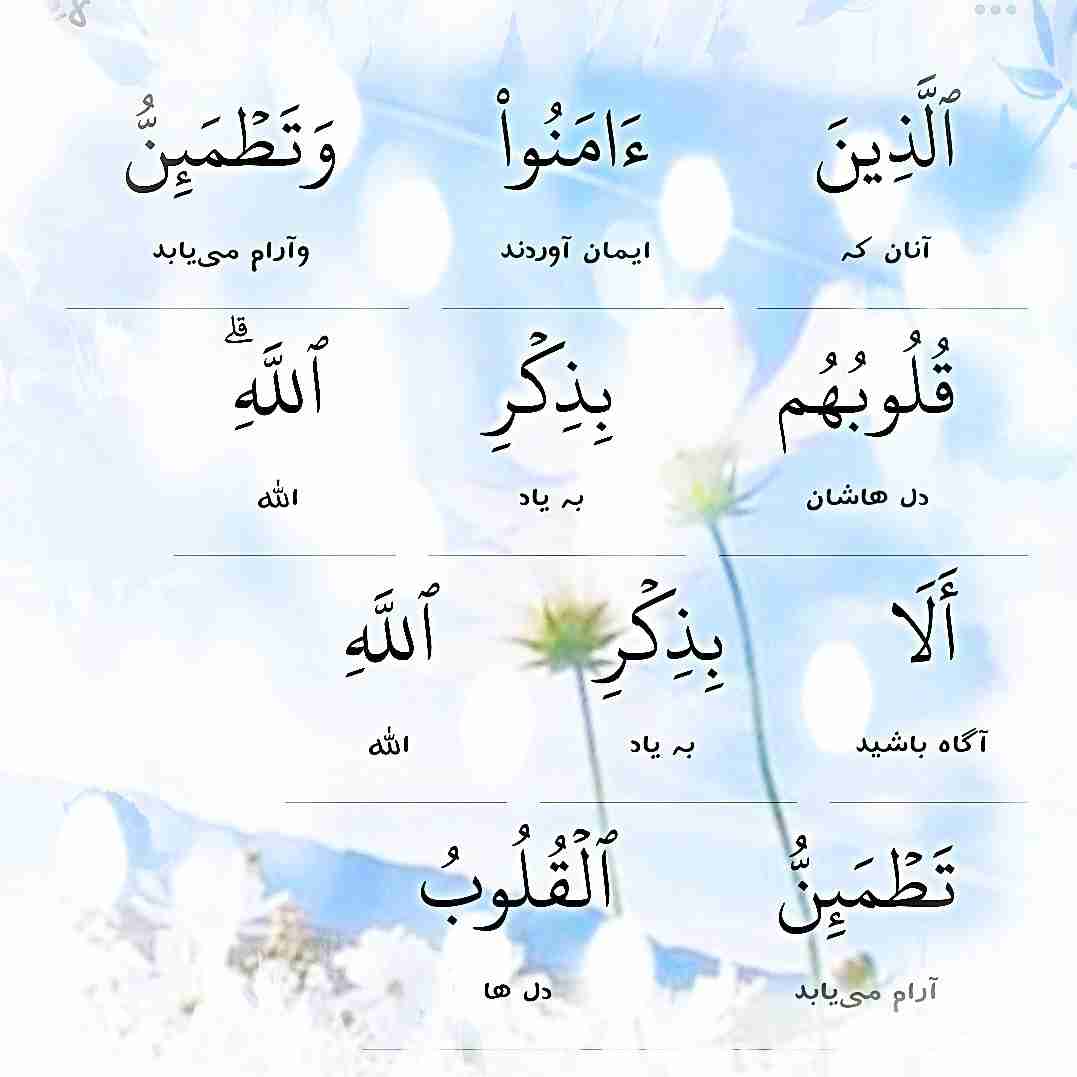 ٱلَّذِينَ ءَامَنُوا۟ وَتَطْمَئِنُّ
آنان که ایمان آوردند وآرام می‌یابد
قُلُوبُهُم بِذِكْرِ ٱللَّهِ ۗ
دل هاشان به یاد الله
أَلَا بِذِكْرِ ٱللَّهِ
آگاه باشید به یاد الله
تَطْمَئِنُّ ٱلْقُلُوبُ
آرام می‌یابد دل ها